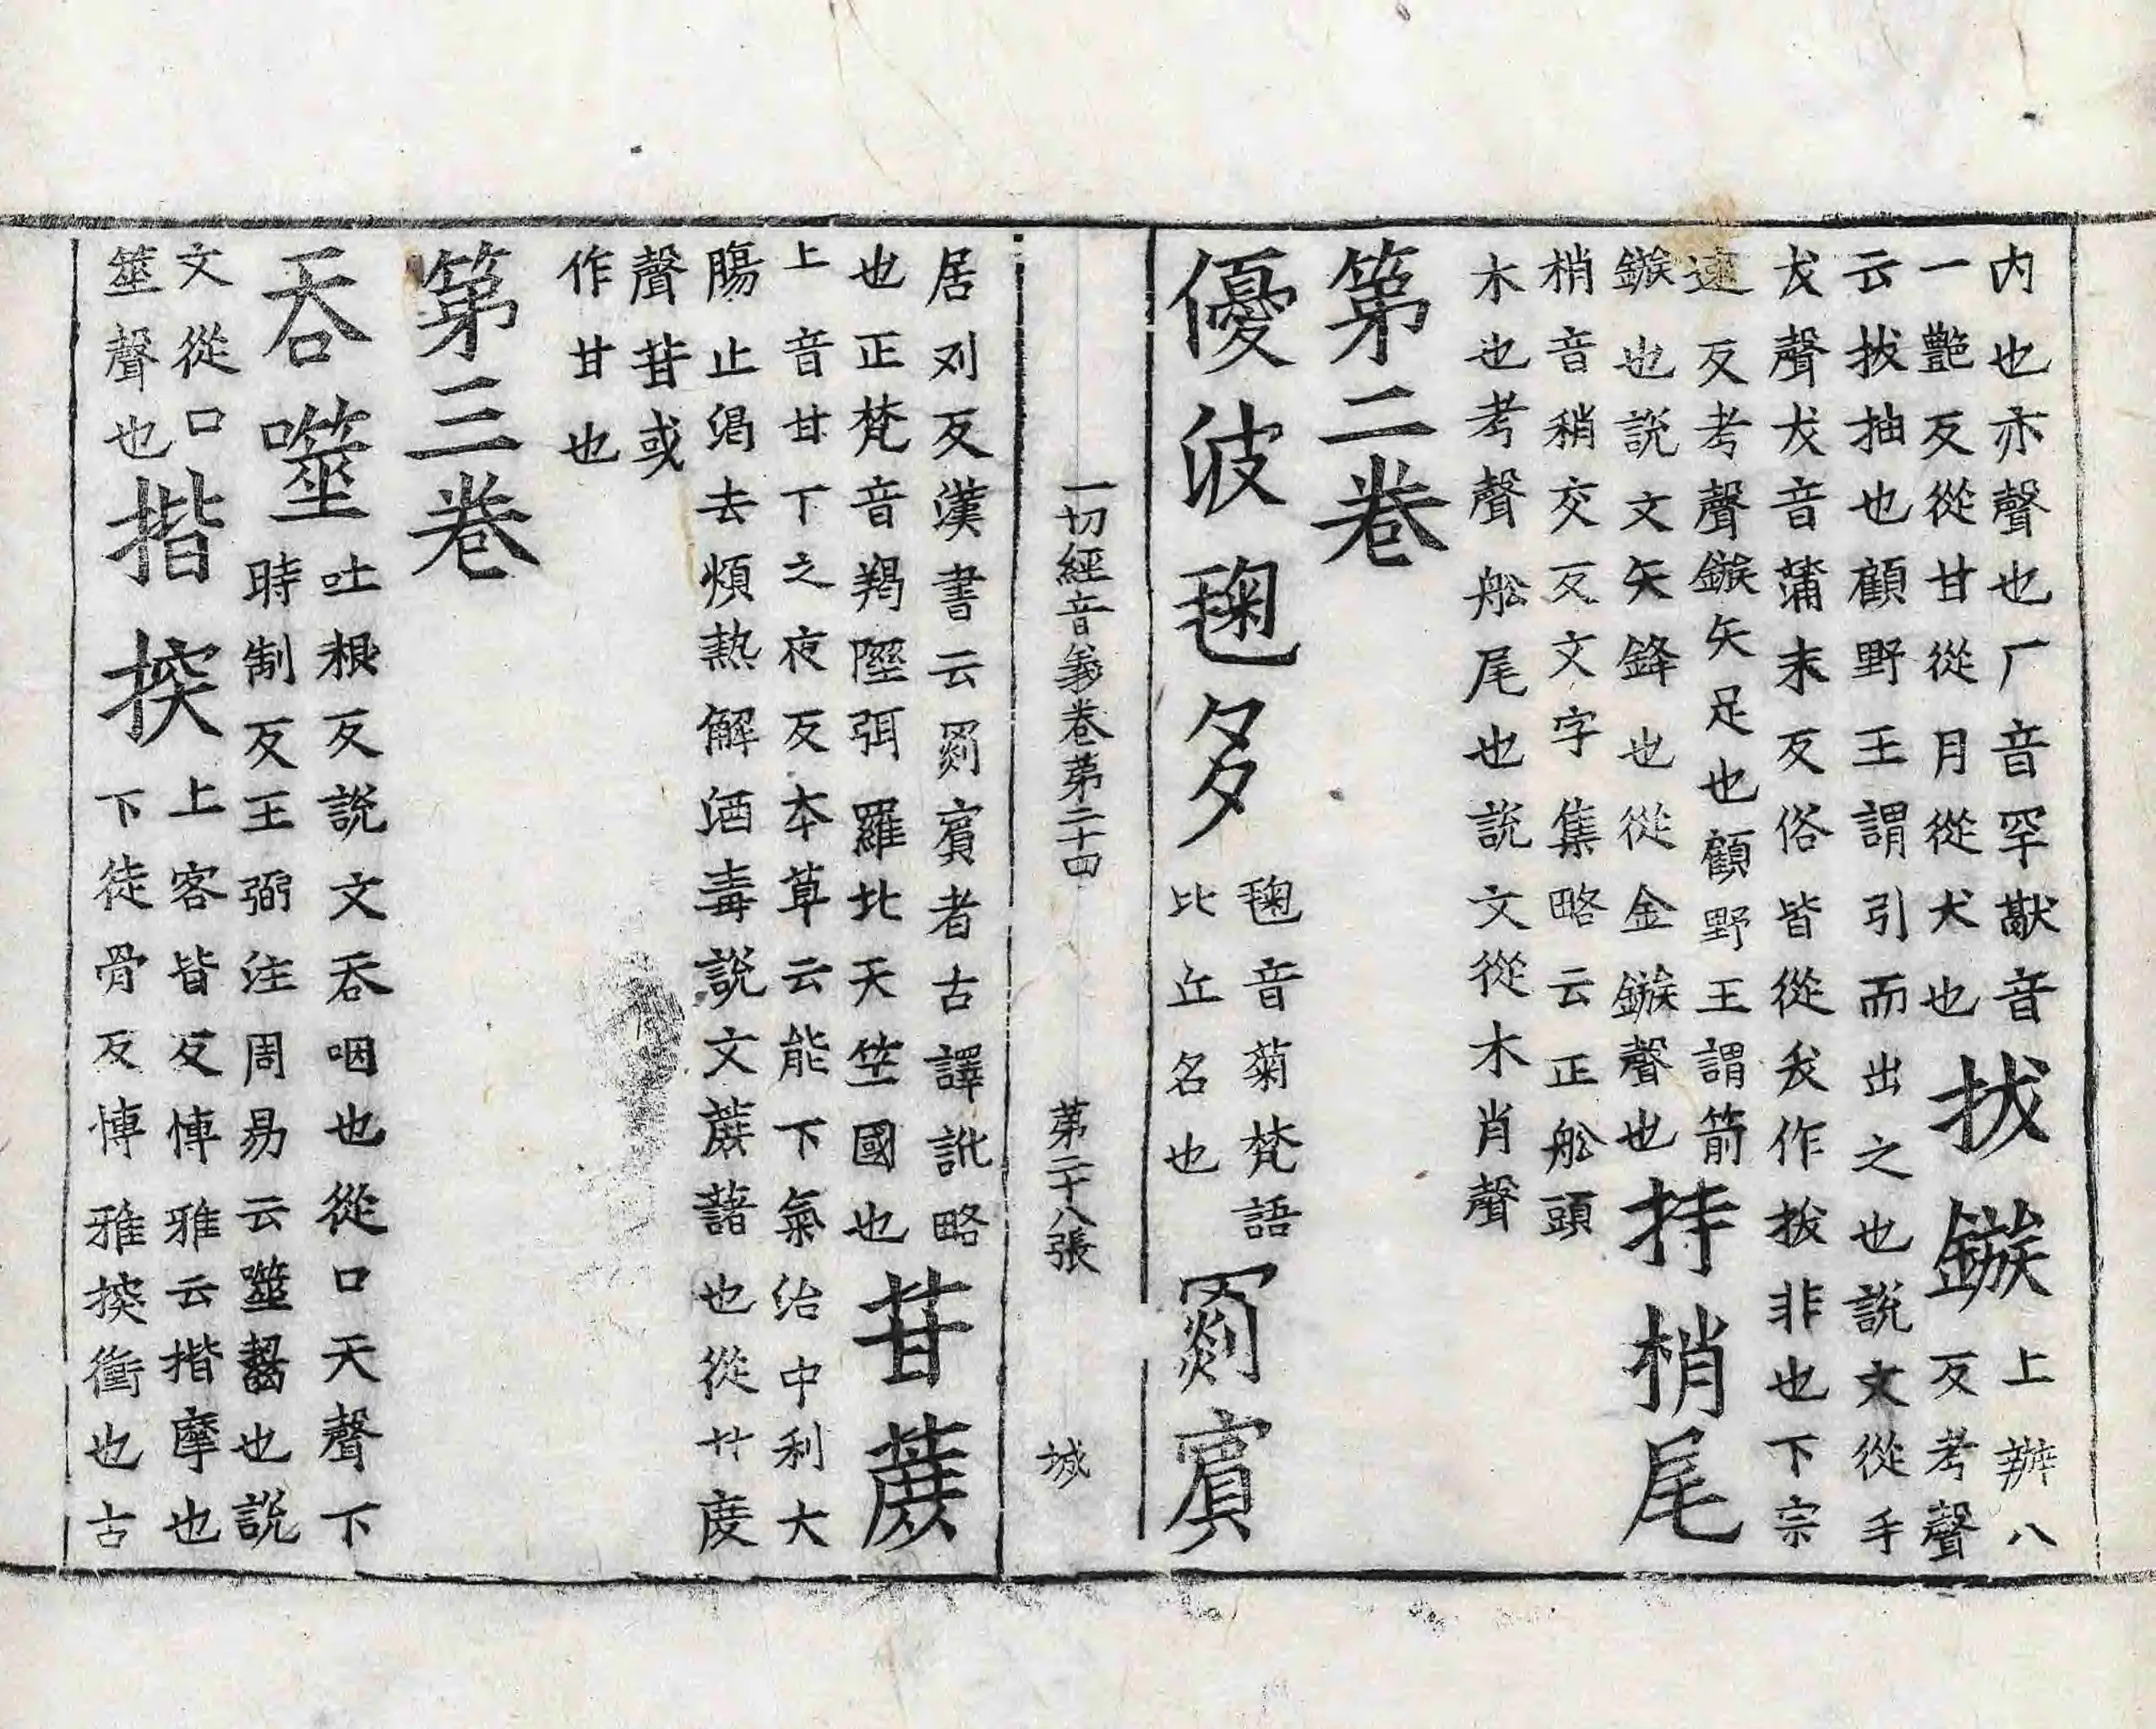 内也亦聲也厂音罕猒音
一艷反從甘從月從犬也
拔鏃
上辦八
反考聲
云拔抽也顧野王謂引而出之也說文從手
犮聲犮音蒲末反俗皆從犮作拔非也下宗
速反考聲鏃矢足也顧野王謂箭
鏃也說文矢鋒也從金鏃聲也
持梢尾
梢音稍交反文字集略云正舩頭
木也考聲舩尾也說文從木肖聲
第二卷
優波毱多
毱音菊梵語
比丘名也
罽賓
一切經音義卷第二十四 第二十八張 城
居刈反漢書云罽賓者古譯訛略
也正梵音羯隰弭羅北天竺國也
苷蔗
上音甘下之夜反本草云能下氣治中利大
腸止渴去煩熱解酒毒說文蔗藷也從廾庶
聲苷或
作甘也
第三卷
吞噬
吐根反說文吞咽也從口天聲下
時制反王弼注周易云噬齧也說
文從口
筮聲也
揩揬
上客皆反博雅云揩摩也
下徒骨反博雅揬衝也古